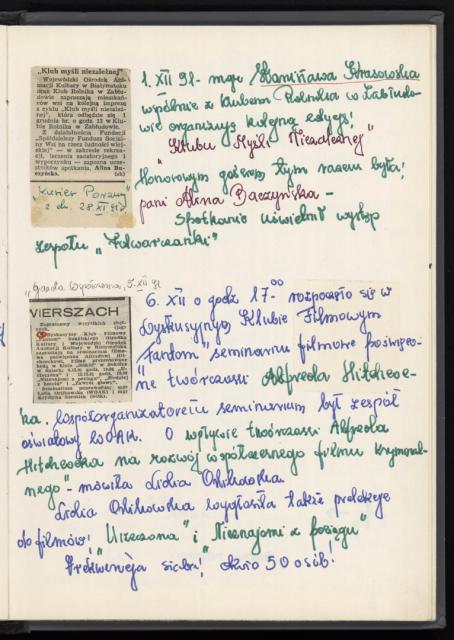 „Klub myśli niezależnej"
Wojewódzki Ośrodek Ani-
macji Kultury w Białymstoku
oraz Klub Rolnika w Zabłu-
dowie zapraszają mieszkań-
ców wsi na kolejną imprezę
z cyklu „Klub myśli niezależ-
nej", która odbędzie się 1
grudnia br. o godz. 13 w Klu-
bie Rolnika w Zabłudowie.
Z działalnością Fundacji
„Spółdzielczy Fundusz Socjal-
ny Wsi na rzecz ludności wiej-
skiej" — w zakresie rekrea-
cji, leczenia sanatoryjnego i
wypoczynku — zapozna ucze-
stników spotkania Alina Ba-
czyńska. (sk)
„Kurier Poranny"
z dn. 28.XI 91r
1. XII 91 - mgr Stanisława Strasowska
wspólnie z Klubem Rolnika w Zabłudo-
wie organizuje kolejną edycję!
"Klubu Myśli Niezależnej"
Honorowym gościem tym razem była!
pani Alina Baczyńska -
Spotkanie uświetnił występ
zespołu „Folwarczanki"
„Gazeta Współczesna, 5.XII 91
WIERSZACH
Zapraszamy wszystkich chęt-
nych.
Dyskusyjny Klub Filmowy
6. XII o godz 17-00 rozpoczęło się w
Dyskusyjnym Klubie Filmowym
"Fantom" seminarium filmowe poświęco-
ne twórczości Alfreda Hitchcoc-
ka. Współorganizatorem seminarium był zespół
oświatowy WOAK. O wpływie twórczości Alfreda
Hitchcocka na rozwój współczesnego filmu kryminal-
nego" - mówiła Lidia Orlikowska
Lidia Orlikowska wygłosiła także prelekcje
do filmów! „Urzeczona" i „Nieznajomi z pociągu"
Frekwencja słaba! około 50 osób!